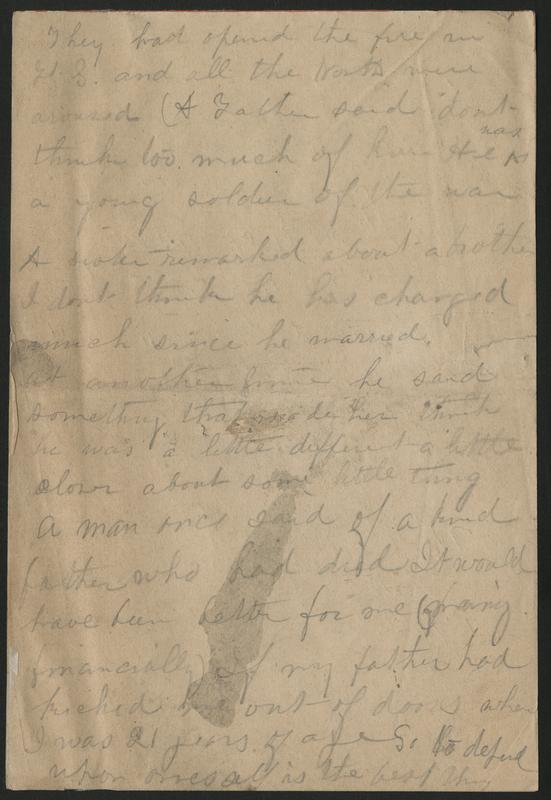 They had opened the fire on
Ft S. and all the North were
aroused (A Father said dont
think too much of him He was
a young soldier of the war
A sister remarked about a brother
I dont think he has changed
much since he married.
at another time he said
something that made her think
he was a little different a little
closer about some little thing
A man once said of a kind
father who had died It would
have been better for me (meaning
financially) if my father had
kicked me out of doors when
I was 21 years of age So to depend
upon oneself is the best thing